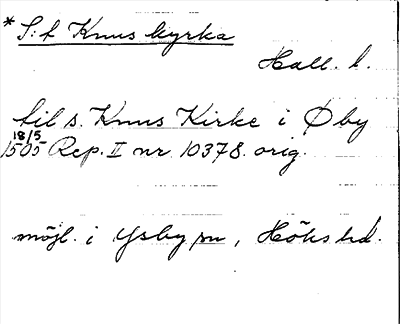 *S:t Knus kyrka
Hall. l.
til s. Knus Kirke i Øby
18/5
1505 Rep. II nr 10378. orig.
möjl. i Ysby sn, Höks hd.